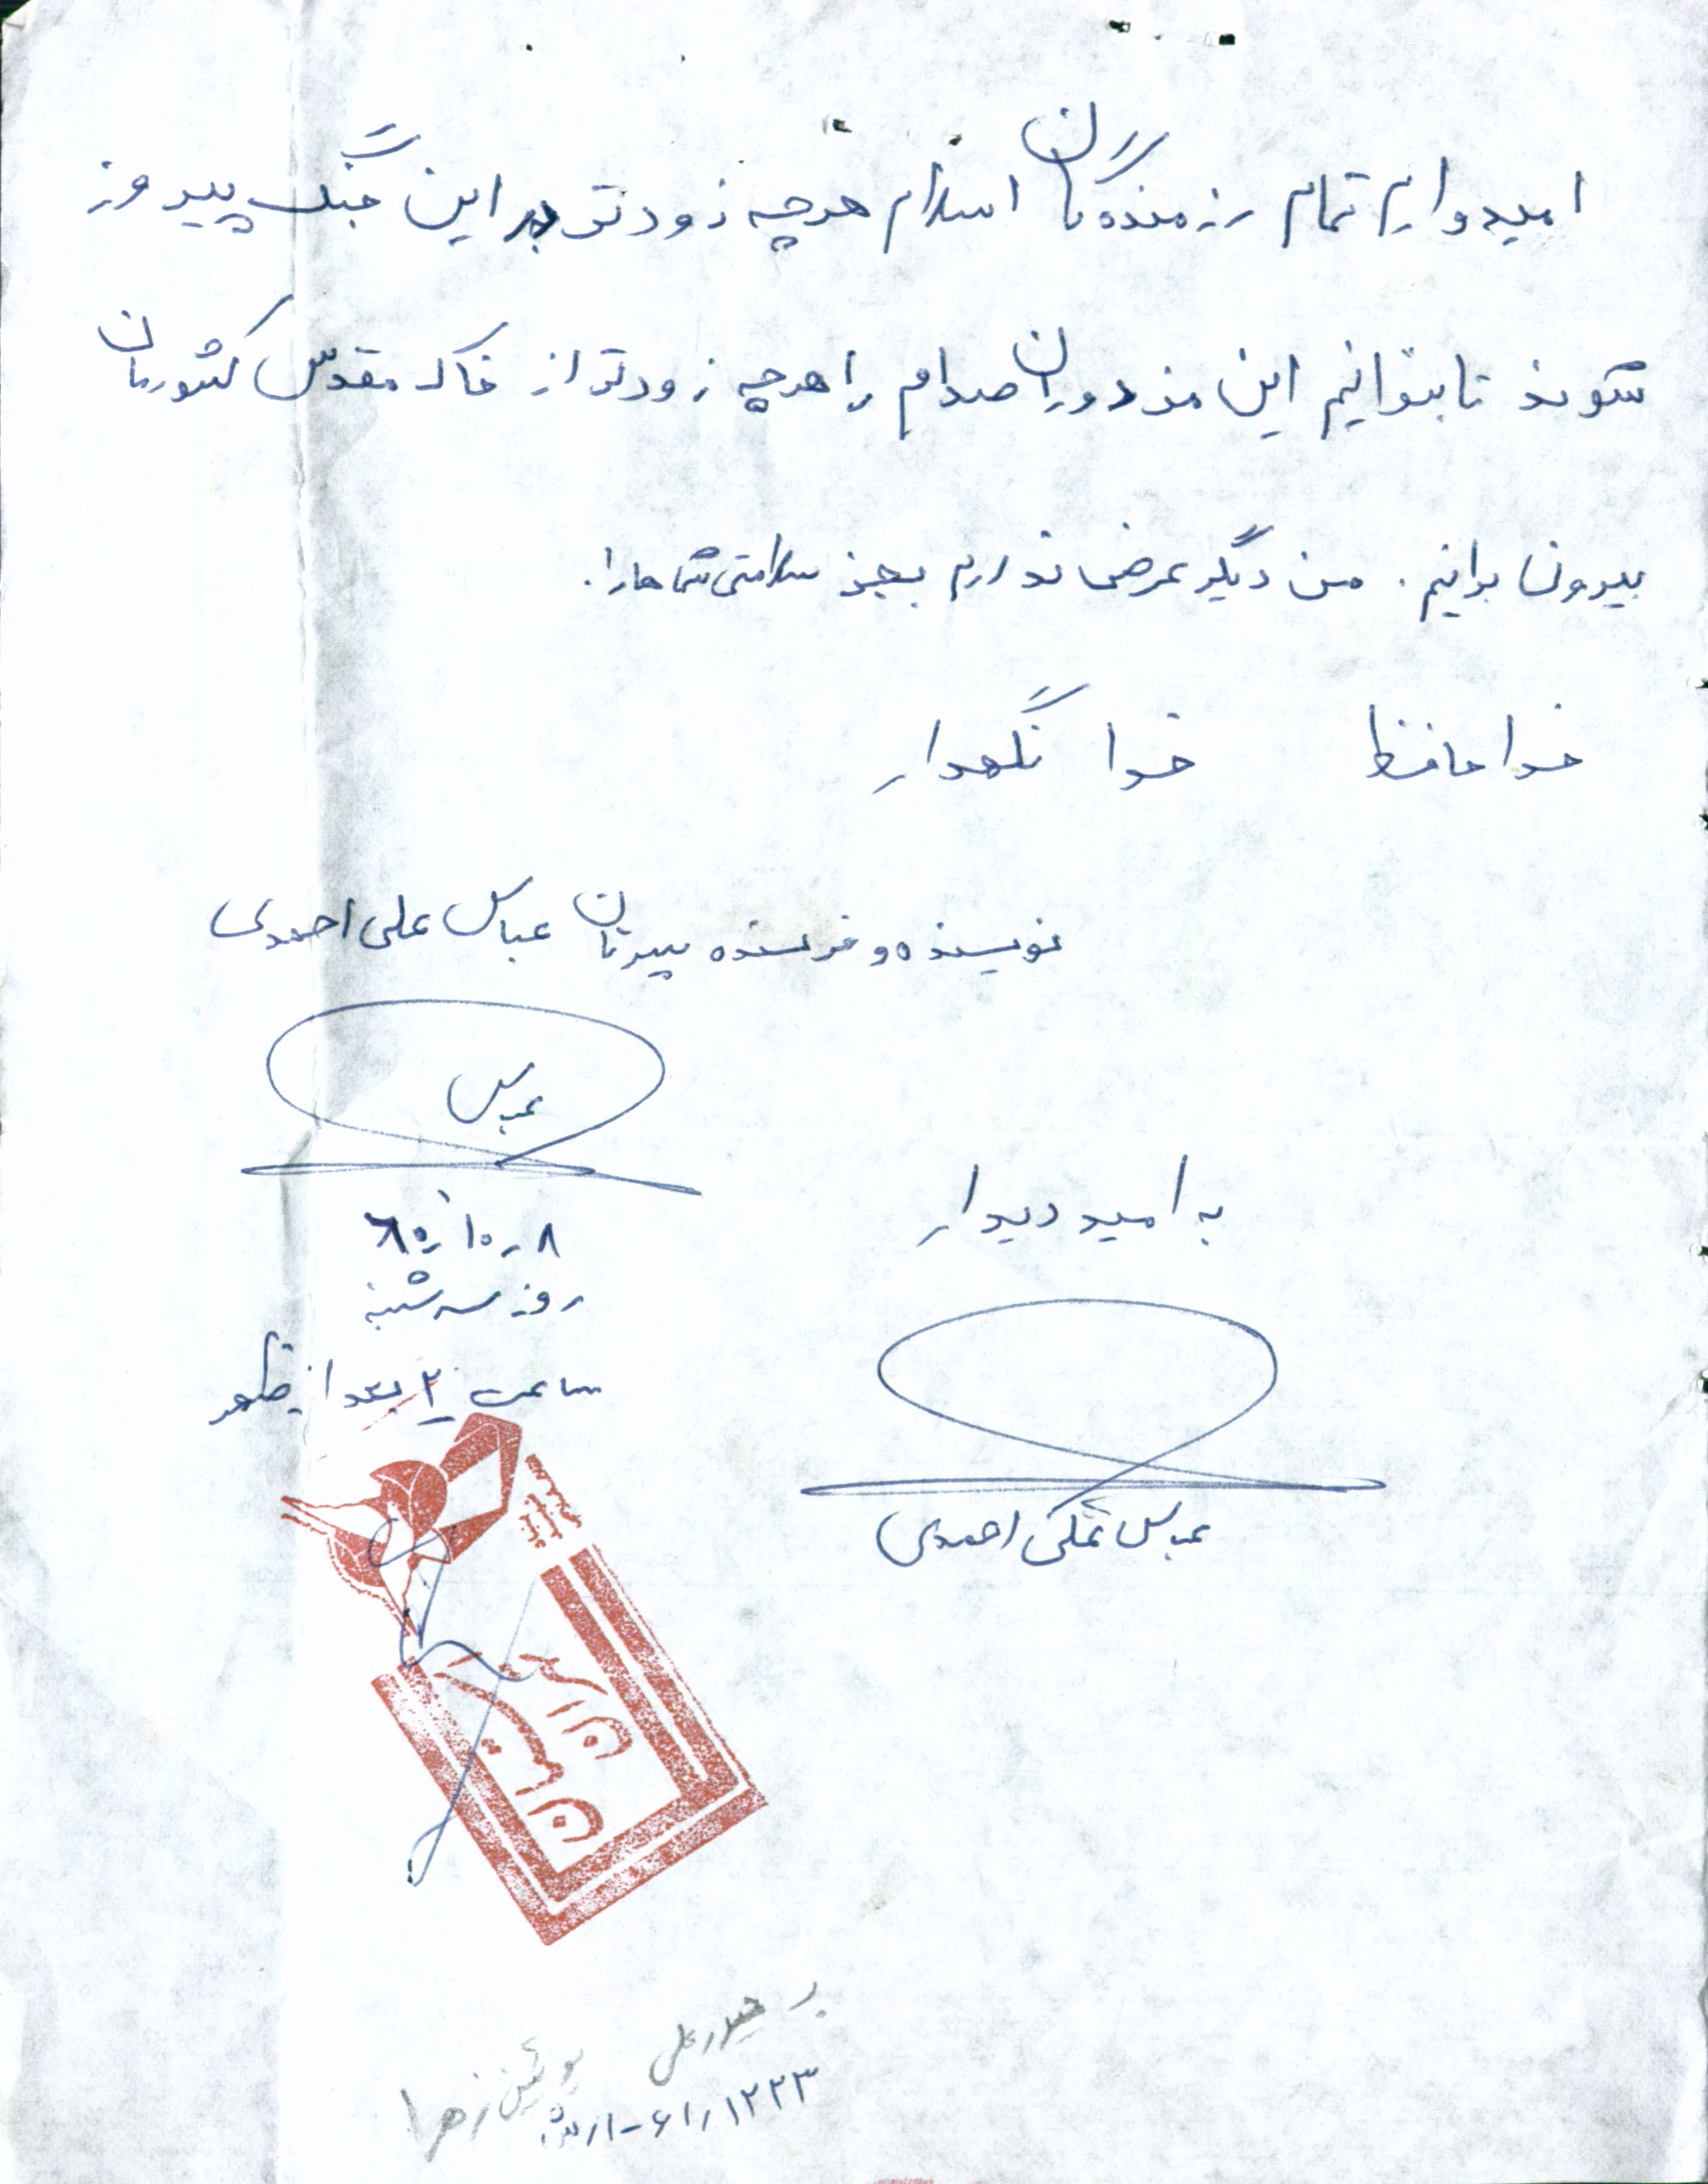 امیدوارم تمام رزمندگان اسلام هرچه زودتر در این جنگ پیروز
شوند تا بتوانیم این مزدوران صدام را هرچه زودتر از خاک مقدس کشورمان
بیرون برانیم. من دیگر عرضی ندارم بجز سلامتی شماها را.
خداحافظ خدا نگهدار
نویسنده و فرستنده پسرتان عباس علی احمدی
عباس
به امید دیدار
۸ر۱۰ر۶۵
روز سه شنبه
ساعت ۲ بعد از ظهر
عباس علی احمدی
حیدر علی بوئین زهرا
۱۲۲۳ر۶۱-ارتش